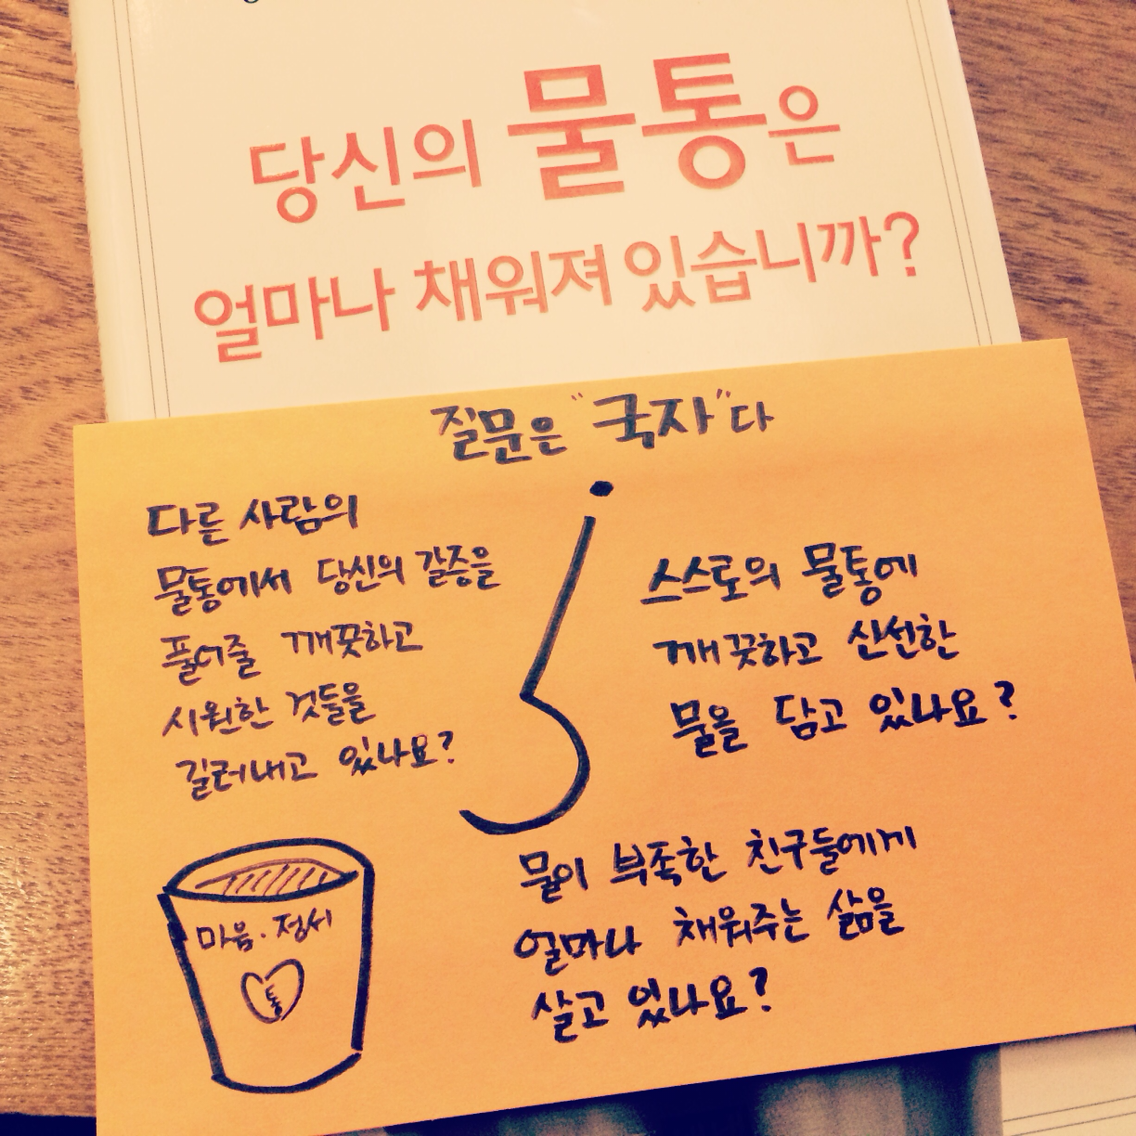 당신의 물통은
얼마나 채워져 있습니까?
질문은 "국자"다
다른 사람의
물통에서 당신의 갈증을
풀어줄 깨끗하고
시원한 것들을
길러내고 있나요?
스스로의 물통에
깨끗하고 신선한
물을 담고 있나요?
물이 부족한 친구들에게
얼마나 채워주는 삶을
살고 있나요?
마음.정서
통